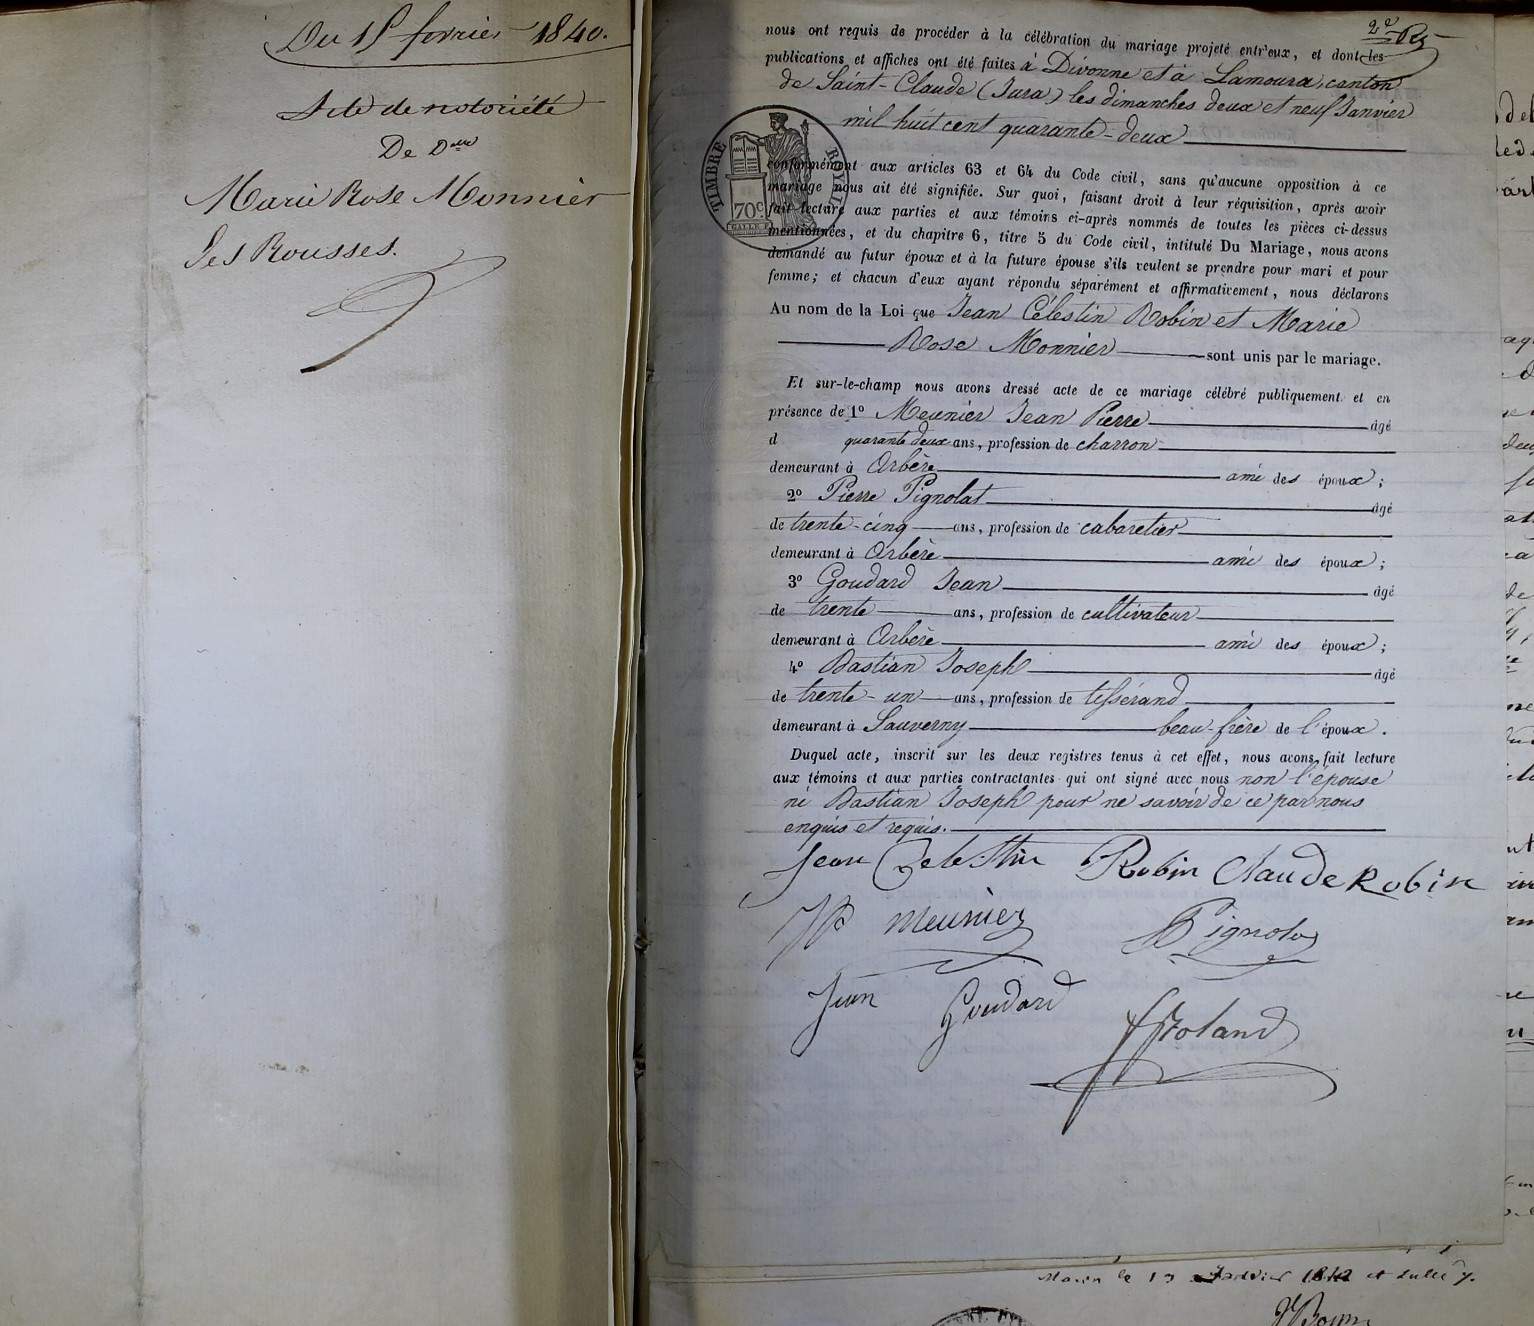 Du 15 fevrier 1840.
Acte de notoriété
De Dlle
Marie Rose Monnier
Les Rousses.
2e
nous ont requis de procéder à la célébration du mariage projeté entr'eux, et dont les
publications et affiches ont été faites à Divonne et à Lamoura, canton
de Saint-Claude (Jura) les dimanches deux et neuf Janvier
mil huit cent quarante-deux
TIMBRE ROYAL
70c
conformément aux articles 63 et 64 du Code civil, sans qu'aucune opposition à ce
mariage nous ait été signifiée. Sur quoi, faisant droit à leur réquisition, après avoir
fait lecture aux parties et aux témoins ci-après nommés de toutes les pièces ci-dessus
mentionnées, et du chapitre 6, titre 5 du Code civil, intitulé Du Mariage, nous avons
demandé au futur époux et à la future épouse s'ils veulent se prendre pour mari et pour
femme; et chacun d'eux ayant répondu séparément et affirmativement, nous déclarons
Au nom de la Loi que Jean Célestin Robin et Marie
Rose Monnier sont unis par le mariage.
Et sur-le-champ nous avons dressé acte de ce mariage célébré publiquement et en
présence de 1o Meunier Jean Pierre âgé
d quarante deux ans, profession de charron
demeurant à Arbère ami des époux;
2o Pierre Pignolat âgé
de trente-cinq ans, profession de cabaretier
demeurant à Arbère ami des époux;
3o Goudard Jean âgé
de trente ans, profession de cultivateur
demeurant à Arbère ami des époux;
4o Bastian Joseph âgé
de trente-un ans, profession de tisserand
demeurant à Sauverny beau-frère de l'époux.
Duquel acte, inscrit sur les deux registres tenus à cet effet, nous avons fait lecture
aux témoins et aux parties contractantes qui ont signé avec nous non l'épouse
ni Bastian Joseph pour ne savoir de ce par nous
enquis et requis.
Jean Celesthin Robin Claude Robin
JP Meunier Pignolat
Jean Goudard
Roland
le 13 Janvier 1842 et